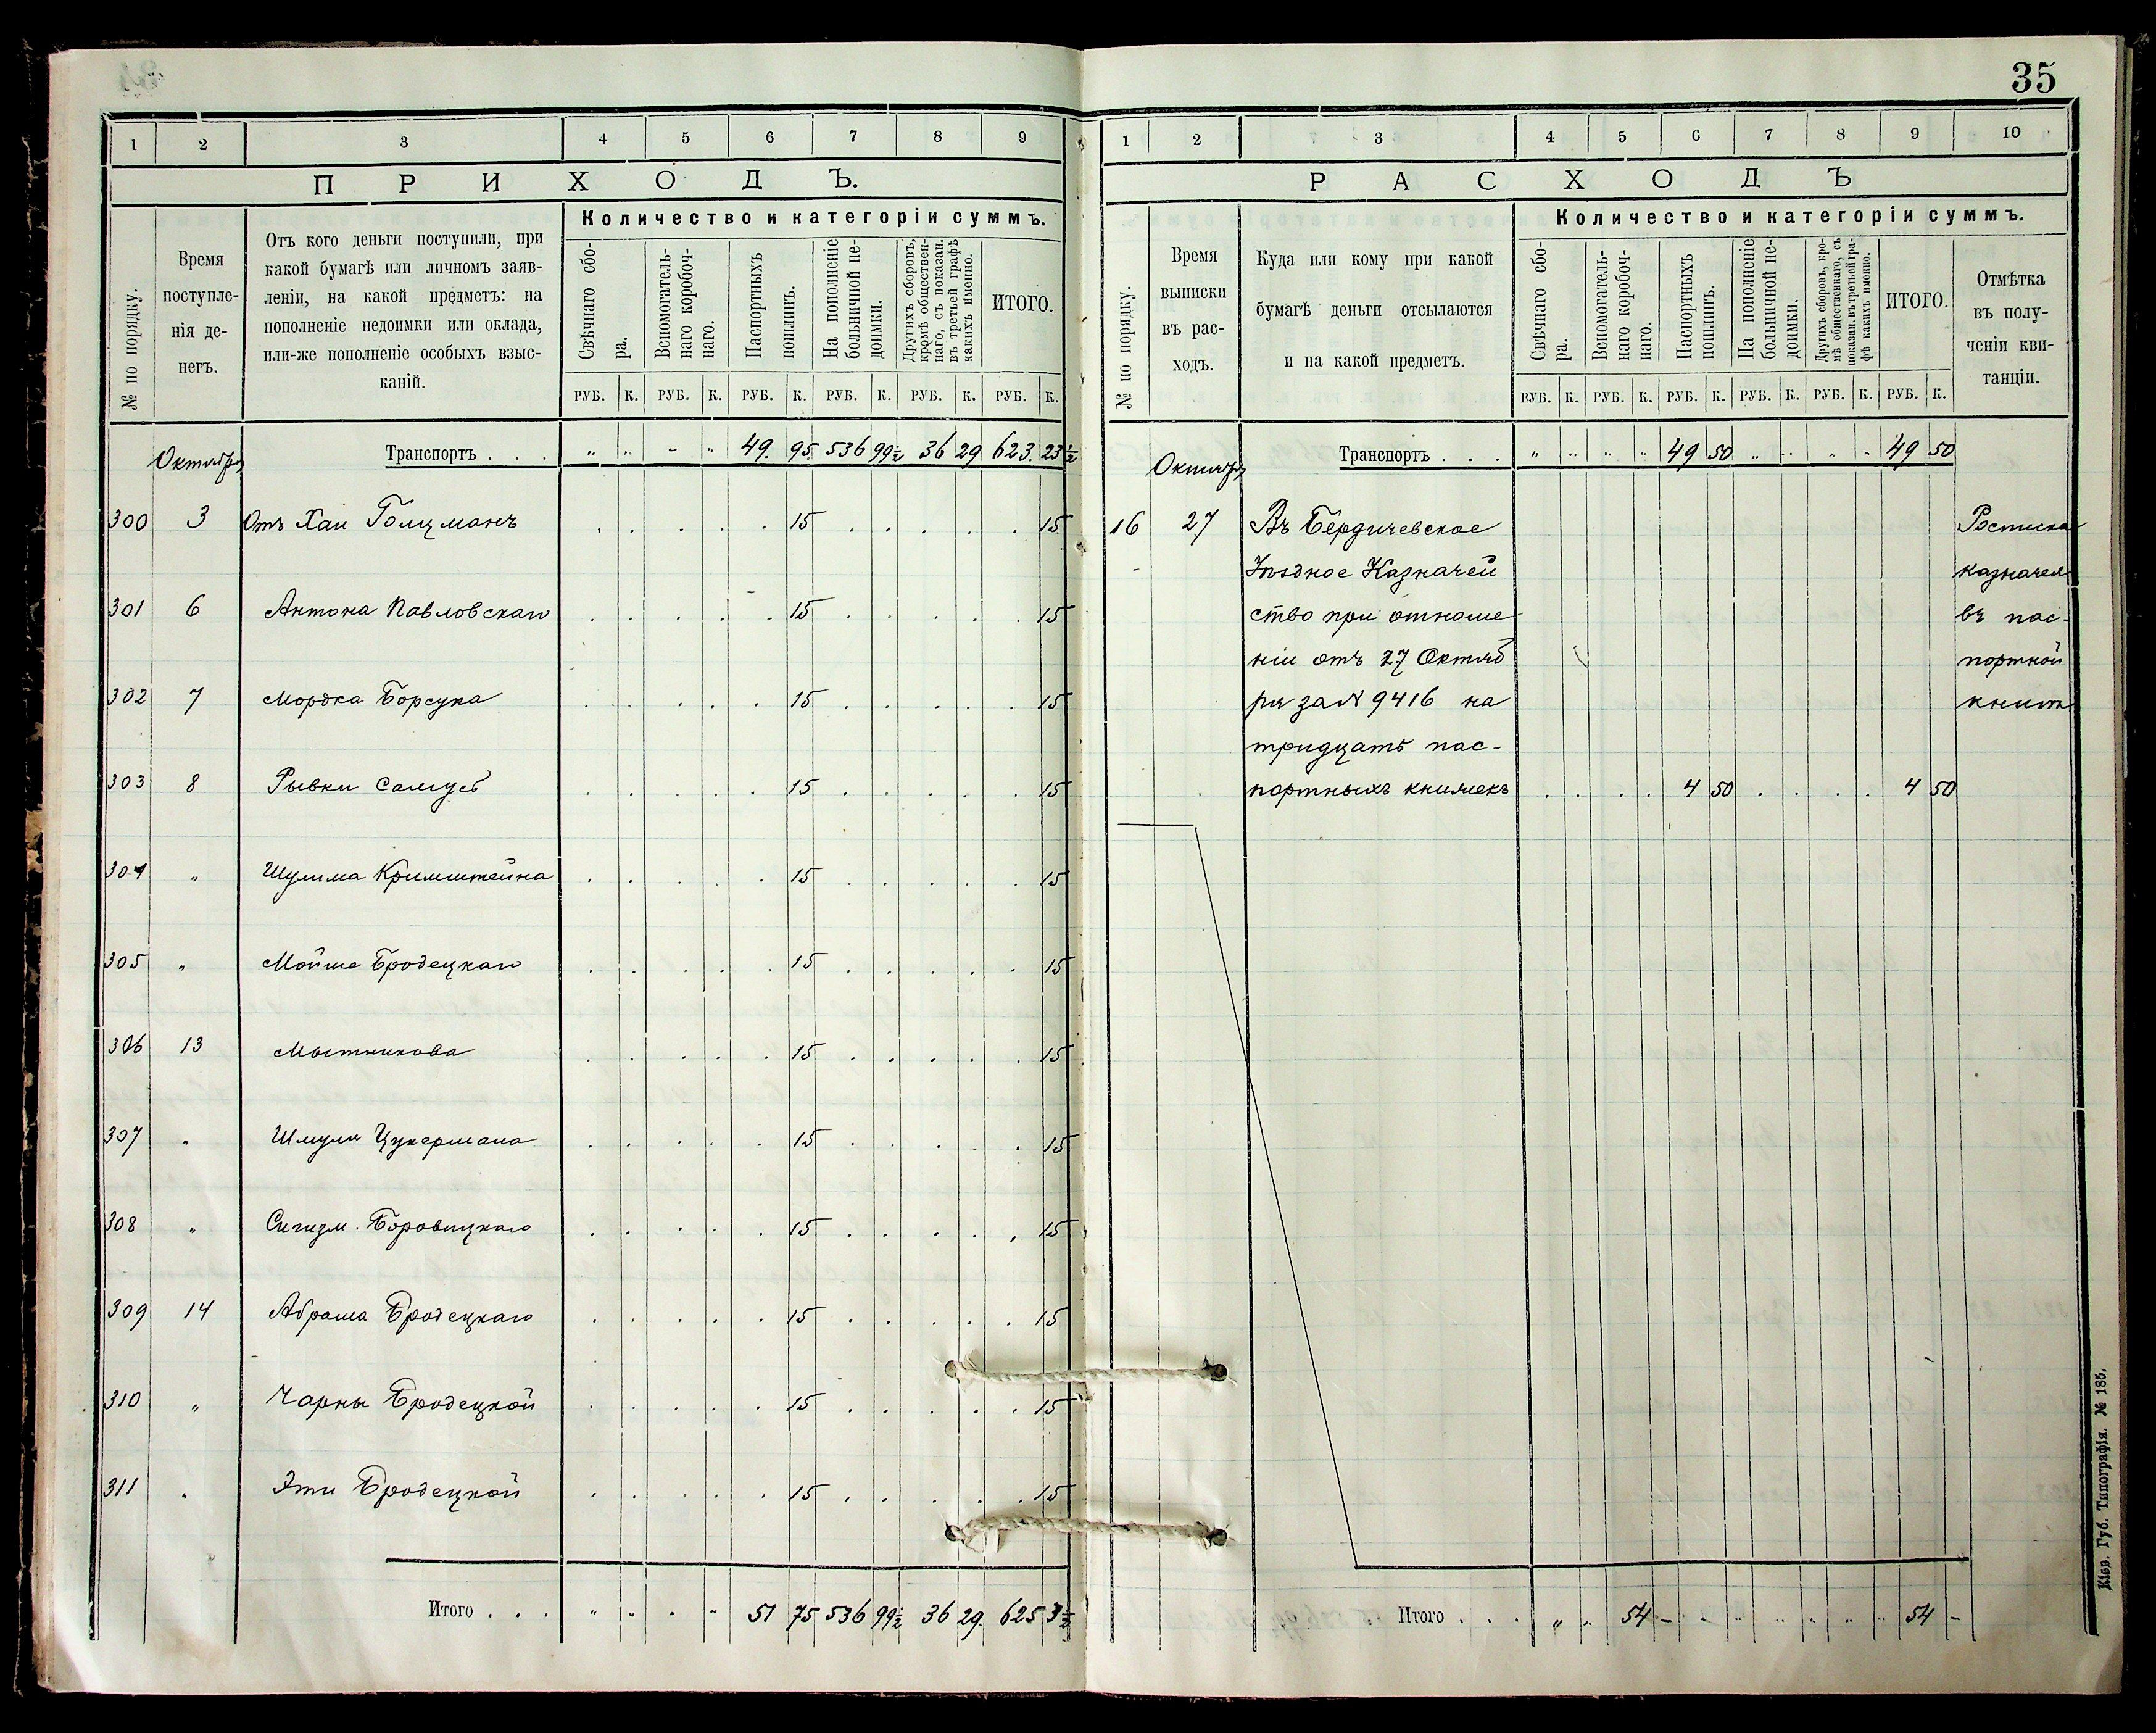 35
1 2 3 4 5 6 7 8 9
ПРИХОДЪ.
№ по порядку.
Время
поступле-
нія де-
негъ.
Отъ кого деньги поступили, при
какой бумагѣ или личномъ заяв-
леніи, на какой предметъ: на
пополненіе недоимки или оклада,
или-же пополненіе особыхъ взыс-
каній.
Количество и категоріи суммъ.
Свѣчнаго сбо-
ра.
Вспомогатель-
наго коробоч-
наго.
Паспортныхъ
пошлинъ.
На пополненіе
больничной не-
доимки.
Другихъ сборовъ,
кромѣ обществен-
наго, съ показан.
въ третьей графѣ
какихъ именно.
ИТОГО.
РУБ. К. РУБ. К. РУБ. К. РУБ. К. РУБ. К. РУБ. К.
Октября Транспортъ . . . " " " " 49. 95. 536 99½ 36 29 623. 23½
300 3 Отъ Хаи Голцманъ . . . . . 15 . . . . . 15
301 6 Антона Павловскаго . . . . . 15 . . . . . 15
302 7 Мордка Борсука . . . . . 15 . . . . . 15
303 8 Рывки Самусь . . . . . 15 . . . . . 15
304 " Шулима Кримштейна . . . . . 15 . . . . . 15
305 " Мойше Бродецкаго . . . . . 15 . . . . . 15
306 13 Мытникова . . . . . 15 . . . . . 15
307 " Шмуля Цукермана . . . . . 15 . . . . . 15
308 " Сигизм. Боровицкаго . . . . . 15 . . . . . 15
309 14 Абрама Бродецкаго . . . . . 15 . . . . . 15
310 " Чарны Бродецкой . . . . . 15 . . . . . 15
311 " Эти Бродецкой . . . . . 15 . . . . . 15
Итого . . . " " " " 51 75 536 99½ 36 29. 625 3½
1 2 3 4 5 6 7 8 9 10
РАСХОДЪ
№ по порядку.
Время
выписки
въ рас-
ходъ.
Куда или кому при какой
бумагѣ деньги отсылаются
и на какой предметъ.
Количество и категоріи суммъ.
Свѣчнаго сбо-
ра.
Вспомогатель-
наго коробоч-
наго.
Паспортныхъ
пошлинъ.
На пополненіе
больничной не-
доимки.
Другихъ сборовъ, кро-
мѣ общественнаго, съ
показан. въ третьей гра-
фѣ какихъ именно.
ИТОГО.
Отмѣтка
въ полу-
ченіи кви-
танціи.
РУБ. К. РУБ. К. РУБ. К. РУБ. К. РУБ. К. РУБ. К.
Октября Транспортъ . . . " " " " 49 50 " " " " 49 50
16 27 Въ Бердичевское Росписка
Уѣздное Казначей казначея
ство при отноше въ пас-
ніи отъ 27 Октяб портной
ря за № 9416 на книгѣ
тридцать пас-
портныхъ книжекъ . . . . 4 50 . . . . 4 50
Итого . . . " " 54 - " " " " " " 54 -
Кіев. Губ. Типографія. № 185.